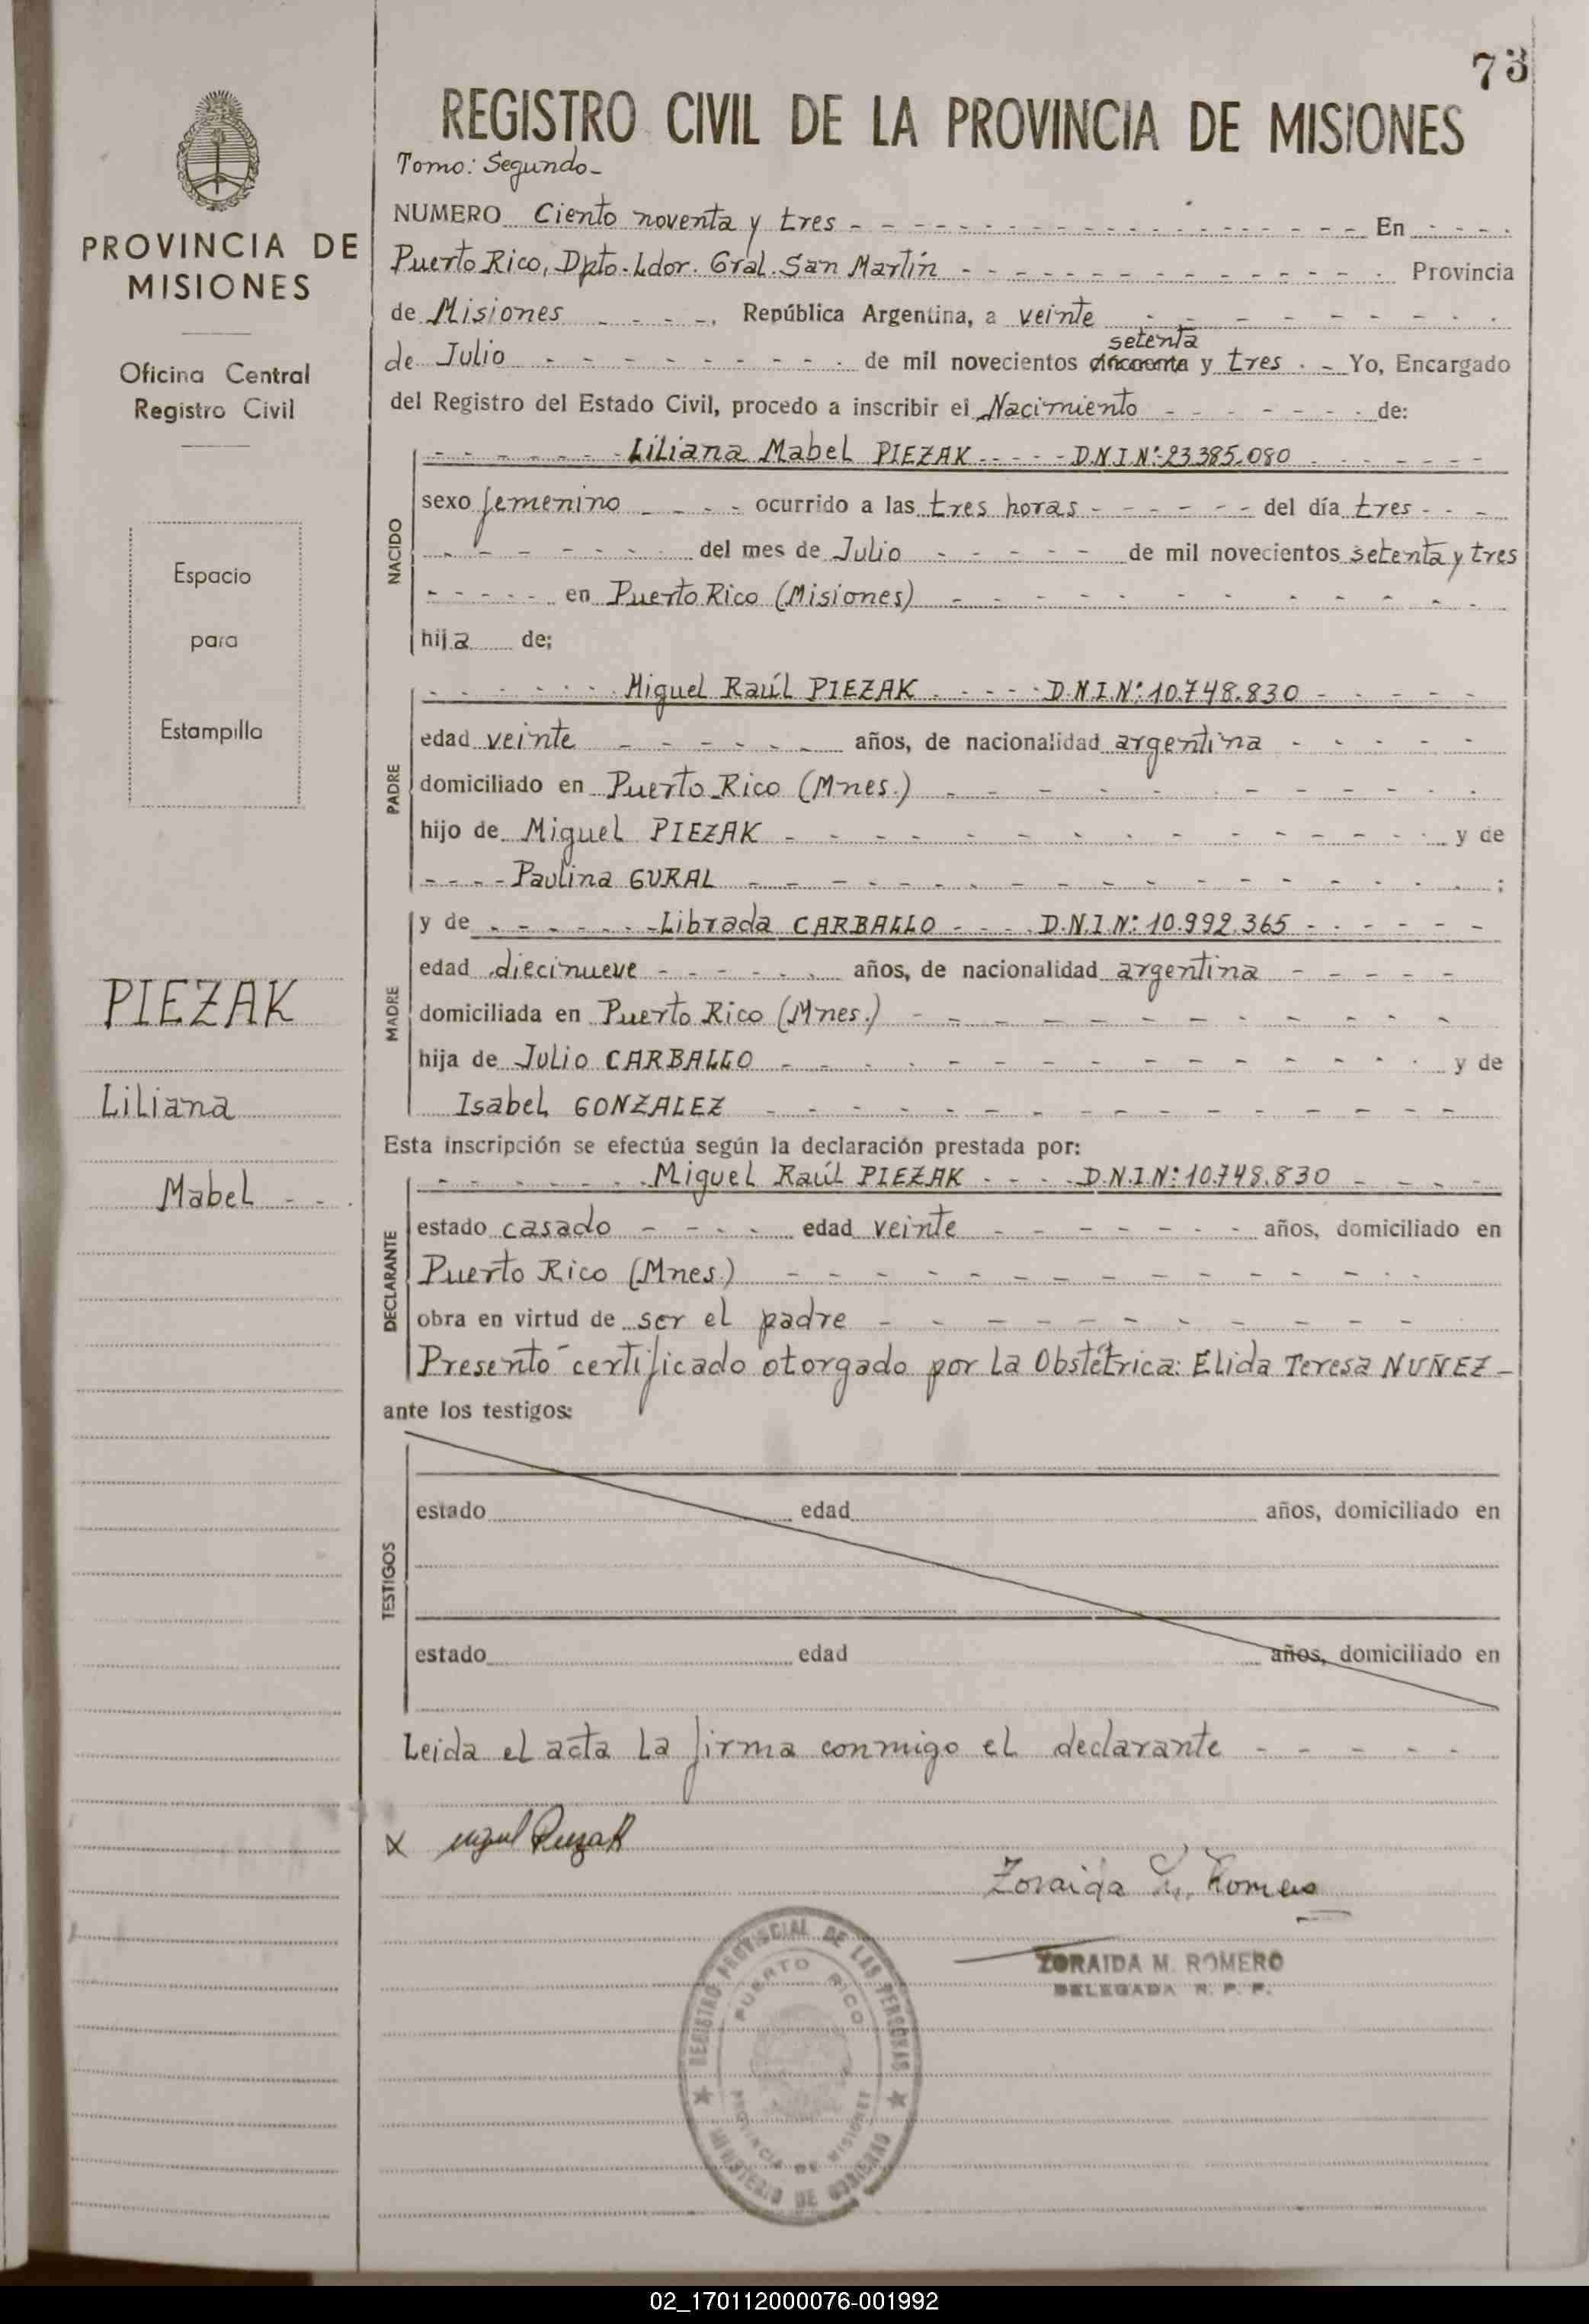 73
REGISTRO CIVIL DE LA PROVINCIA DE MISIONES
Tomo: Segundo-
PROVINCIA DE
MISIONES
Oficina Central
Registro Civil
Espacio
para
Estampilla
PIEZAK
Liliana
Mabel
NUMERO Ciento noventa y tres En
Puerto Rico, Dpto. Ldor. Gral. San Martín Provincia
de Misiones, República Argentina, a veinte
setenta
de Julio de mil novecientos cincuenta y tres. Yo, Encargado
del Registro del Estado Civil, procedo a inscribir el Nacimiento de:
NACIDO
Liliana Mabel PIEZAK D.N.I.Nº: 23.385.080
sexo femenino ocurrido a las tres horas del día tres
del mes de Julio de mil novecientos setenta y tres
en Puerto Rico (Misiones)
hija de;
PADRE
Miguel Raúl PIEZAK D.N.I.Nº: 10.748.830
edad veinte años, de nacionalidad argentina
domiciliado en Puerto Rico (Mnes.)
hijo de Miguel PIEZAK y de
Paulina GURAL ;
MADRE
y de Librada CARBALLO D.N.I.Nº: 10.992.365
edad diecinueve años, de nacionalidad argentina
domiciliada en Puerto Rico (Mnes.)
hija de Julio CARBALLO y de
Isabel GONZALEZ
Esta inscripción se efectúa según la declaración prestada por:
DECLARANTE
Miguel Raúl PIEZAK D.N.I.Nº: 10.748.830
estado casado edad veinte años, domiciliado en
Puerto Rico (Mnes.)
obra en virtud de ser el padre
Presentó certificado otorgado por la Obstétrica: Elida Teresa NUÑEZ-
ante los testigos:
TESTIGOS
estado edad años, domiciliado en
estado edad años, domiciliado en
Leida el acta la firma conmigo el declarante
X Miguel Piezak
Zoraida M. Romero
ZORAIDA M. ROMERO
DELEGADA R. P. P.
REGISTRO PROVINCIAL DE LAS PERSONAS
PUERTO RICO
PROVINCIA DE MISIONES
MINISTERIO DE GOBIERNO
02_170112000076-001992